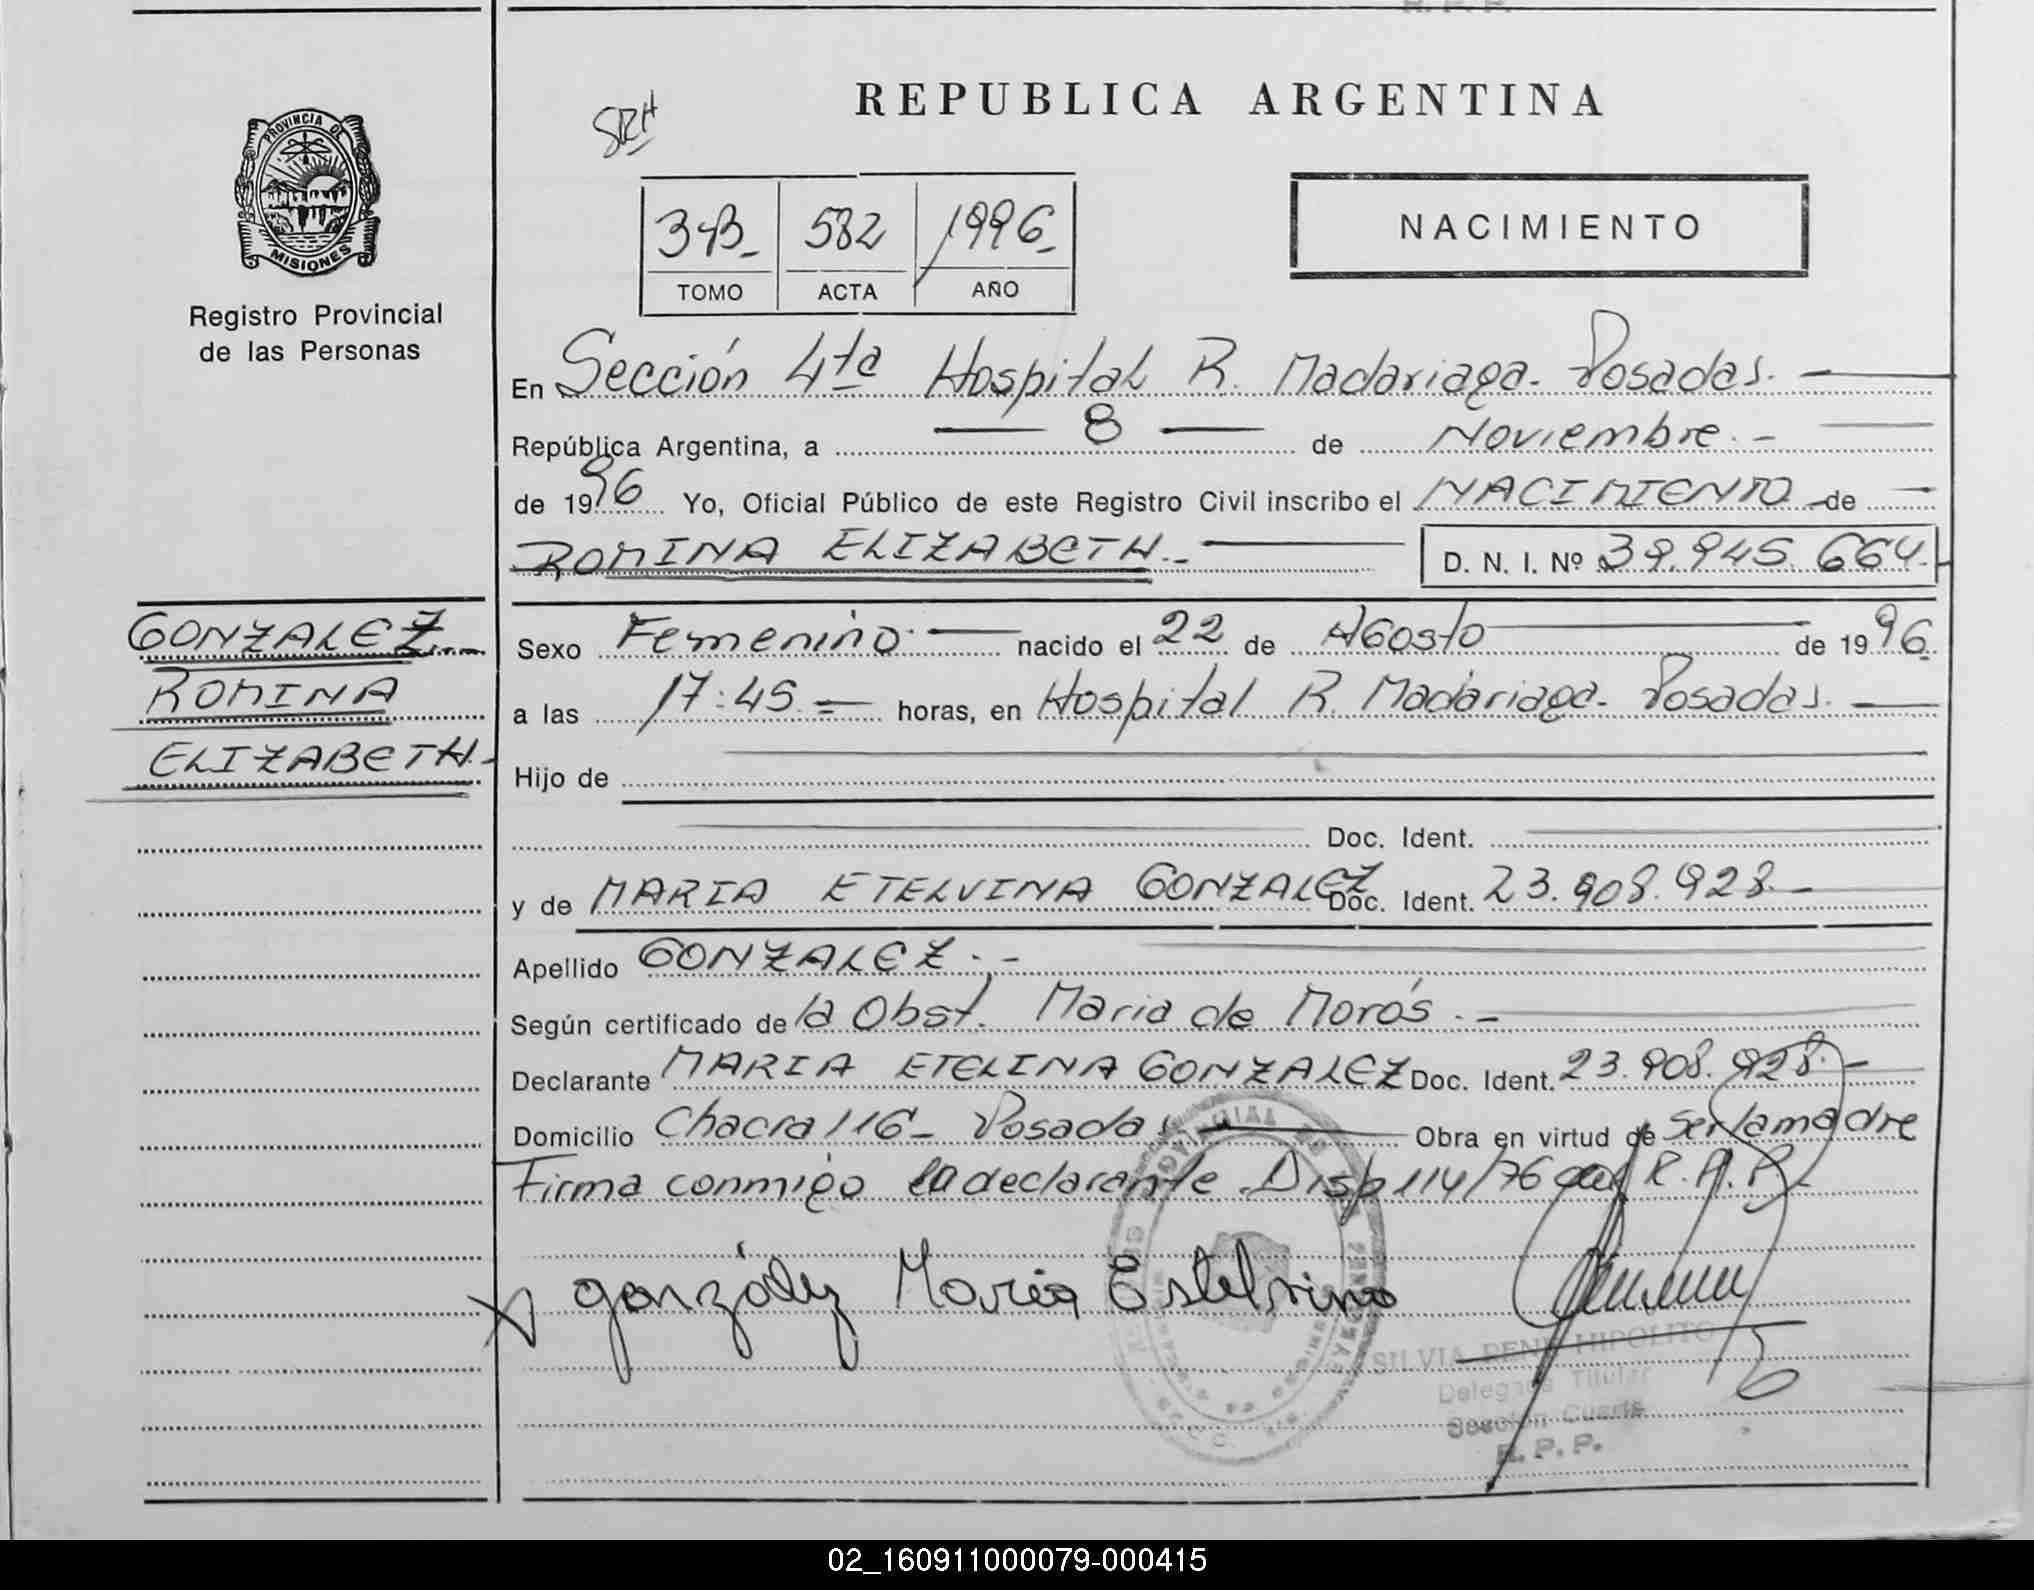 REPUBLICA ARGENTINA
SRH
PROVINCIA DE
MISIONES
Registro Provincial
de las Personas
3-B- 582 1996-
TOMO ACTA AÑO
NACIMIENTO
En Sección 4ta Hospital R. Madariaga- Posadas.
República Argentina, a 8 de Noviembre.-
de 1996 Yo, Oficial Público de este Registro Civil inscribo el NACIMIENTO de
ROMINA ELIZABETH.- D. N. I. Nº 39.945.664.-
GONZALEZ
ROMINA
ELIZABETH.-
Sexo Femenino.- nacido el 22 de Agosto de 1996.
a las 17:45.= horas, en Hospital R. Madariaga- Posadas.
Hijo de
Doc. Ident.
y de MARIA ETELVINA GONZALEZ Doc. Ident. 23.908.928.-
Apellido GONZALEZ.-
Según certificado de la Obst. Maria de Morós.-
Declarante MARIA ETELINA GONZALEZ Doc. Ident. 23.908.928.-
Domicilio Chacra 116- Posadas Obra en virtud de ser la madre
Firma conmigo la declarante. Disp 114/76 del R.P.P.
gonzález María Estelvina
SILVIA RENE HIPOLITO
Delegada Titular
Sección Cuarta
R. P. P.
02_160911000079-000415